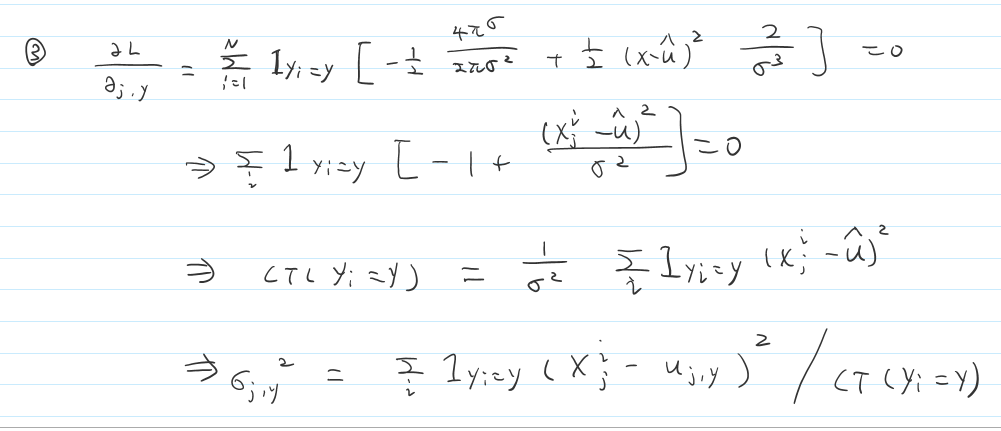 ③ ∂L / ∂j,y = Σ_{i=1}^{N} 1_{yi=y} [ -1/2 4πσ / 2πσ² + 1/2 (x-û)² 2/σ³ ] = 0
⇒ Σ_i 1_{yi=y} [ -1 + (x_j^i - û)² / σ² ] = 0
⇒ CT(yi=y) = 1/σ² Σ_i 1_{yi=y} (x_j^i - û)²
⇒ σ_{j,y}² = Σ_i 1_{yi=y} (x_j^i - u_{j,y})² / CT(yi=y)